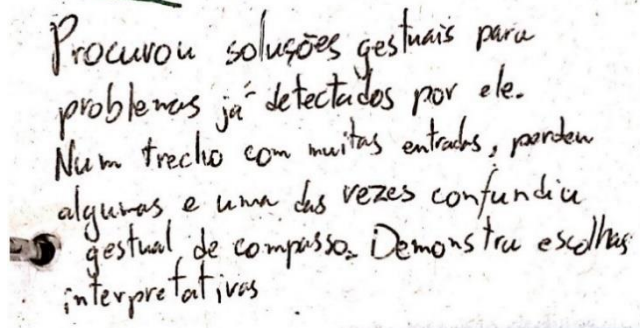 Procurou soluções gestuais para
problemas já detectados por ele.
Num trecho com muitas entradas, perdeu
algumas e uma das vezes confundiu
gestual de compasso. Demonstra escolhas
interpretativas